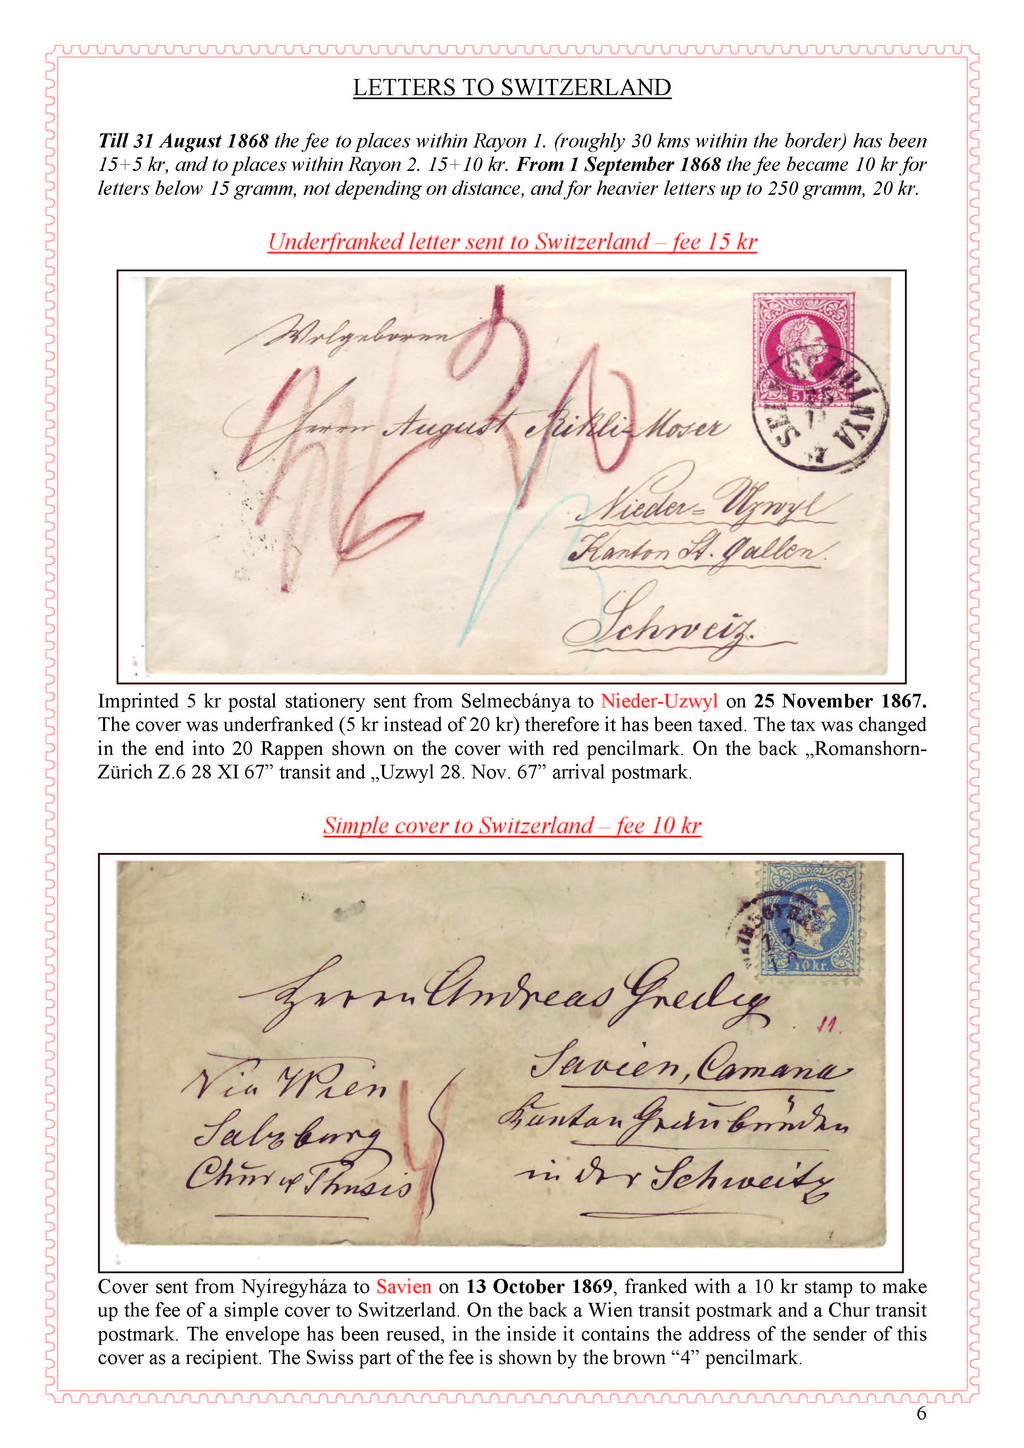 LETTERS TO SWITZERLAND
Till 31 August 1868 the fee to places within Rayon 1. (roughly 30 kms within the border) has been
15+5 kr, and to places within Rayon 2. 15+10 kr. From 1 September 1868 the fee became 10 kr for
letters below 15 gramm, not depending on distance, and for heavier letters up to 250 gramm, 20 kr.
Underfranked letter sent to Switzerland – fee 15 kr
Wolgeboren
Herrn August Rikli-Moser
Nieder=Uzwyl
Kanton St. Gallen.
Schweiz.
Imprinted 5 kr postal stationery sent from Selmecbánya to Nieder-Uzwyl on 25 November 1867.
The cover was underfranked (5 kr instead of 20 kr) therefore it has been taxed. The tax was changed
in the end into 20 Rappen shown on the cover with red pencilmark. On the back „Romanshorn-
Zürich Z.6 28 XI 67” transit and „Uzwyl 28. Nov. 67” arrival postmark.
Simple cover to Switzerland – fee 10 kr
10 kr.
Herrn Andreas Gredig
11.
Savien, Camana
Kanton Graubünden
in der Schweitz
Via Wien
Salzburg
Chur & Thusis
4
Cover sent from Nyíregyháza to Savien on 13 October 1869, franked with a 10 kr stamp to make
up the fee of a simple cover to Switzerland. On the back a Wien transit postmark and a Chur transit
postmark. The envelope has been reused, in the inside it contains the address of the sender of this
cover as a recipient. The Swiss part of the fee is shown by the brown “4” pencilmark.
6